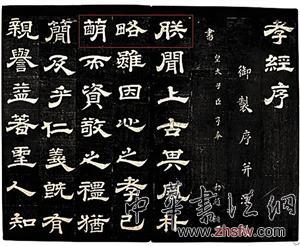 孝經序
御製序并
書
皇太子臣亨奉
朕聞上古其風朴
略雖因心之孝已
萌而資敬之禮猶
簡及乎仁義既有
親譽益著聖人知
中華書法網